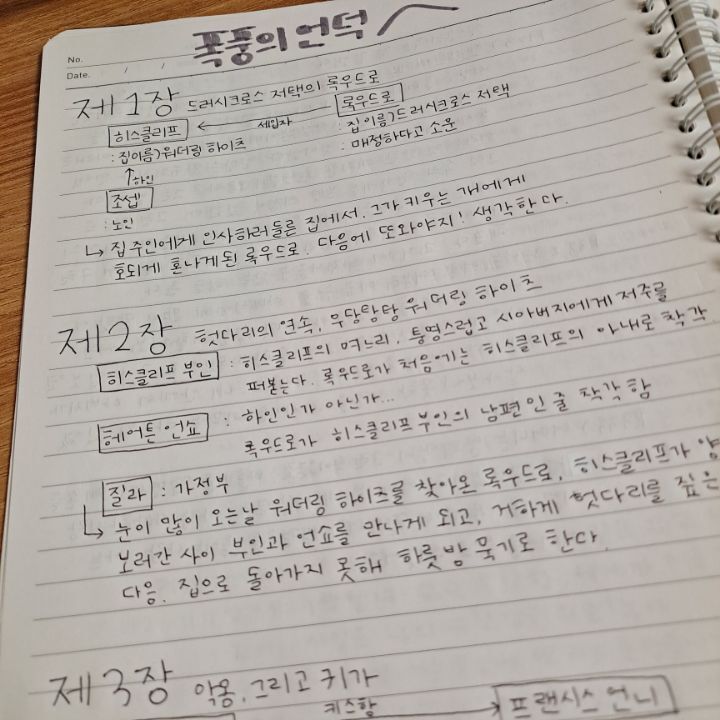 폭풍의 언덕
No.
Date. / /
제1장 드러시크로스 저택의 록우드로
히스클리프 ← 세입자 록우드로
: 집이름) 워더링 하이츠 : 집이름) 드러시크로스 저택
↑하인 : 매정하다고 소문
조셉
: 노인
↳ 집주인에게 인사하러 들른 집에서, 그가 키우는 개에게
호되게 혼나게 된 록우드로. 다음에 또와야지! 생각한다.
제2장 헛다리의 연속, 우당탕탕 워더링 하이츠
히스클리프 부인 : 히스클리프의 며느리. 퉁명스럽고 시아버지에게 저주를
퍼붓는다. 록우드로가 처음에는 히스클리프의 아내로 착각
헤어튼 언쇼 : 하인인가 아닌가...
록우드로가 히스클리프 부인의 남편인 줄 착각함
질라 : 가정부
↳ 눈이 많이 오는날 워더링 하이츠를 찾아온 록우드로, 히스클리프가 양
보러간 사이 부인과 언쇼를 만나게 되고, 거하게 헛다리를 짚은
다음, 집으로 돌아가지 못해 하룻밤 묵기로 한다.
제3장 악몽, 그리고 귀가
키스함 → 프랜시스 언니